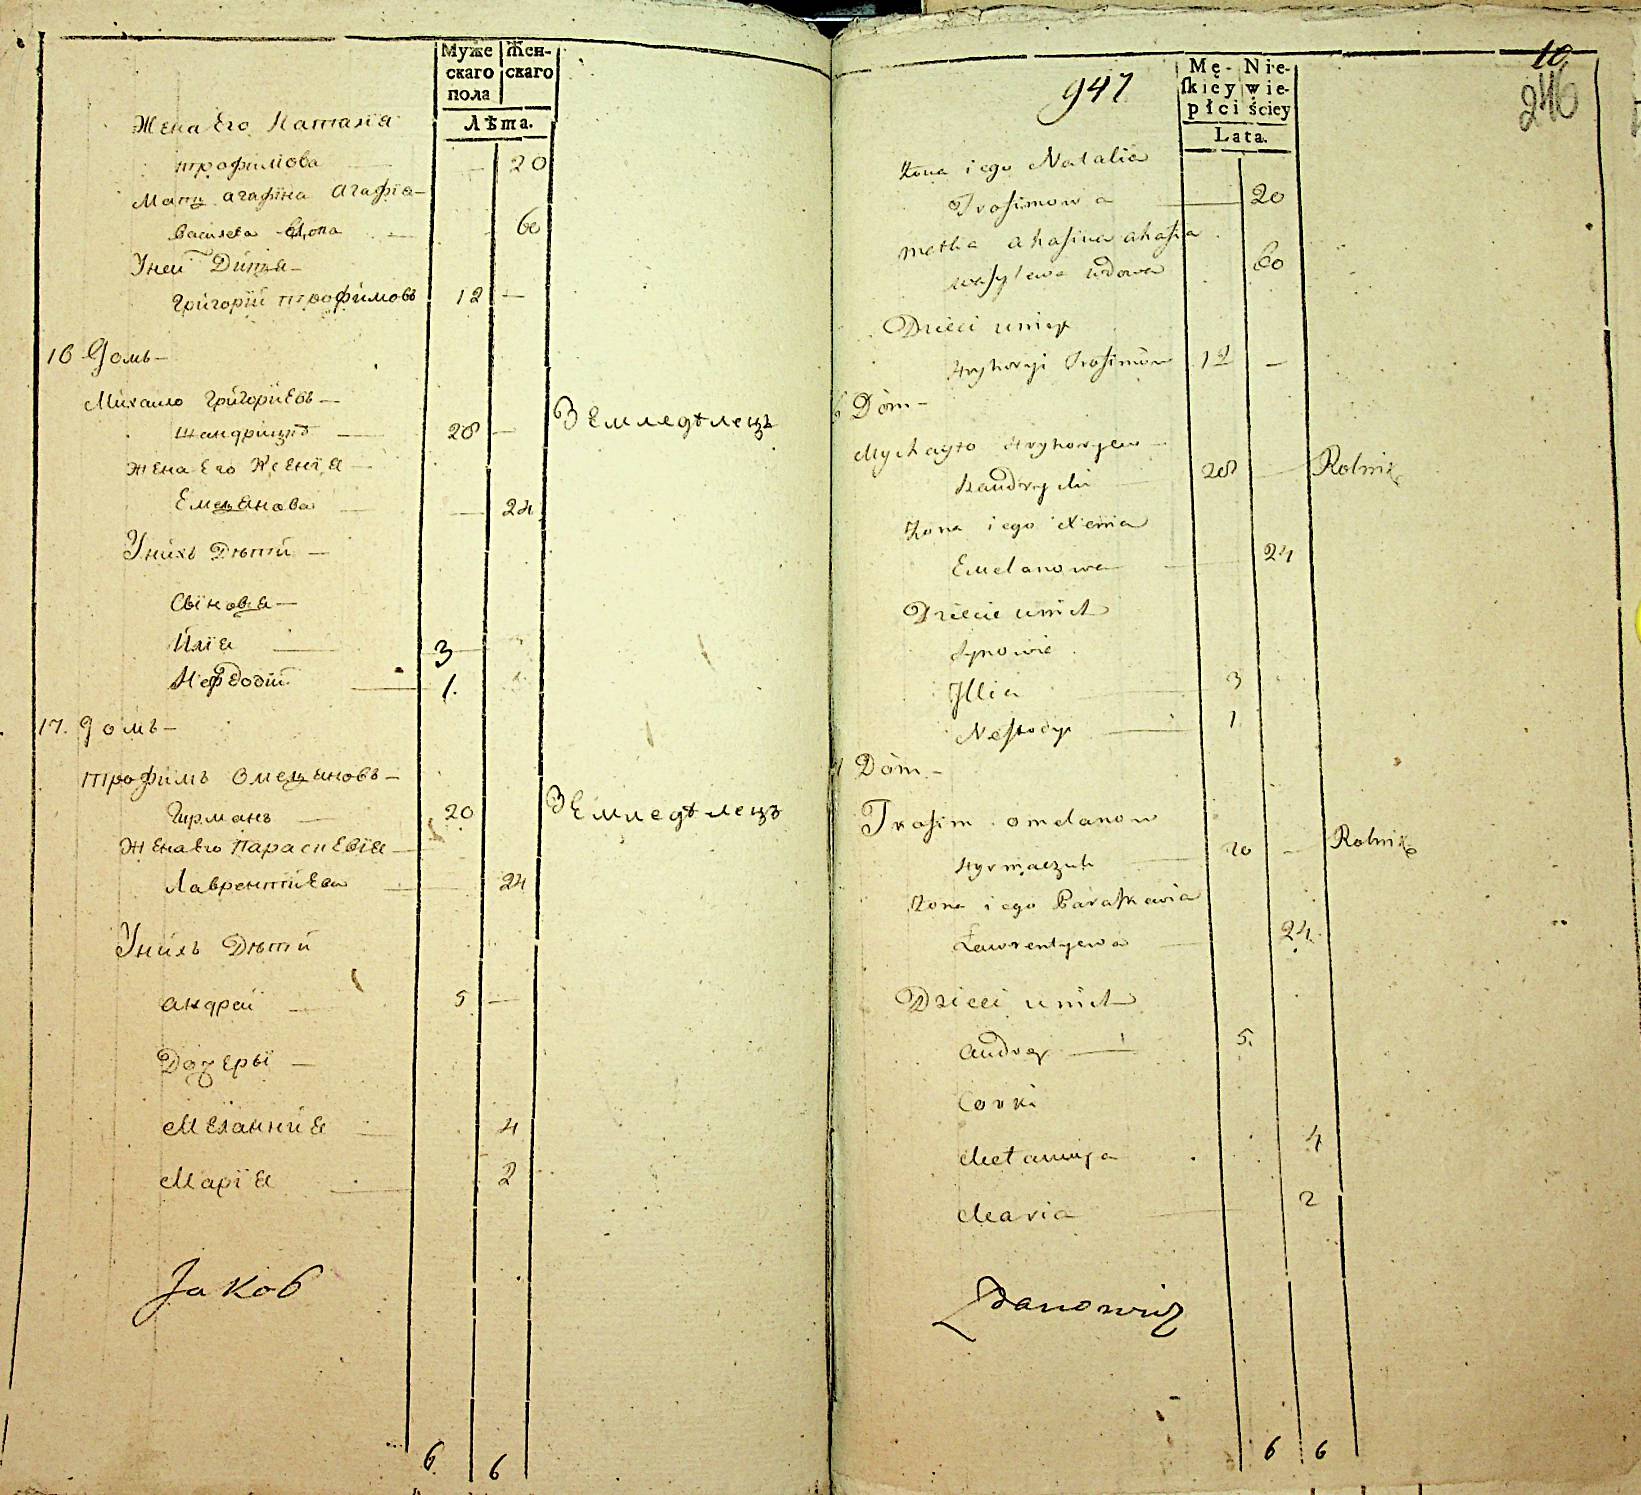 Муже Жен-
скаго скаго
пола
Лѣта.
Жена Его Наталїя
трофимова — 20
Мать агафїна агафїа —
василева вдова — 60
Уней Дитя —
Григорїй трофимовъ 12 —
16 Домъ —
Михаило Григорїевъ —
28 — Земледѣлецъ
жена Его Ксенїя —
Емелянова — 24
Унихъ Дѣти —
Синовя —
Илїя — 3
1.
17. Домъ —
трофимъ Омеляновъ —
20 Земледѣлецъ
Жена Его Параскевїя —
Лаврентїева — 24
Унихъ Дѣти
андрей — 5 —
Дочеры —
Меланнїя — 4
Марїя — 2
Jakob
6 6
10
947
246
Mę- Nie-
ſkiey wie-
płci ściey
Lata.
Żona iego Natalia
Trofimowa — 20
matka ahafina ahafia
wasylewa wdowa 60
Dzieci uniey
Hryhoryi Trofimów 12 —
Dom —
Mychayło Hryhoryew —
28 — Rolnik
Żona iego Xenia
Emelanowa — 24
Dziecie unich
Synowie
Illia — 3
1
Dom —
Trofim omelanow
Hyrmaczuk — 20 — Rolnik
Żona iego Paraſkewia
Ławrentyewa — 24
Dzieci unich
Andrey — 5.
Corki
Mełannya 4
Maria — 2
Zdanowicz
6 6